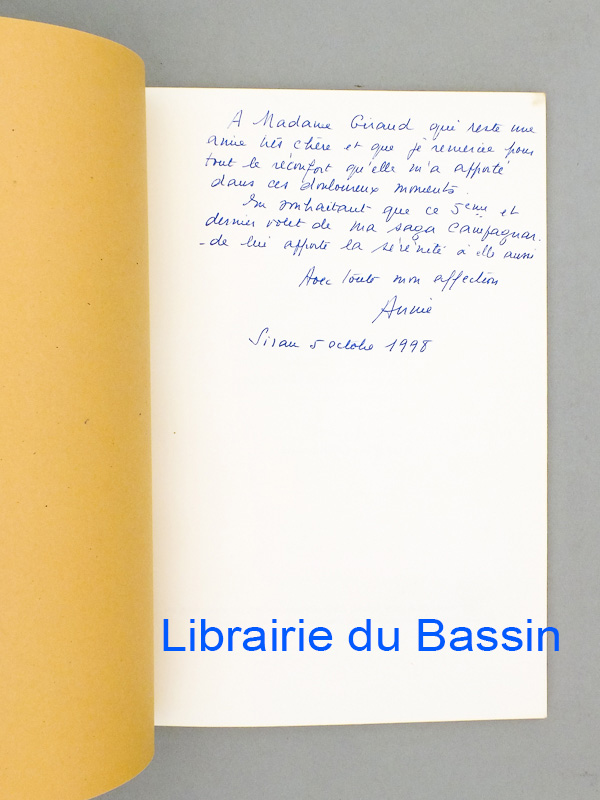 A Madame Giraud qui reste une
amie très chère et que je remercie pour
tout le réconfort qu'elle m'a apporté
dans ces douloureux moments.
En souhaitant que ce 5ème et
dernier volet de ma saga campagnar-
-de lui apporte la sérénité à elle aussi
Avec toute mon affection
Annie
Siran 5 octobre 1998
Librairie du Bassin